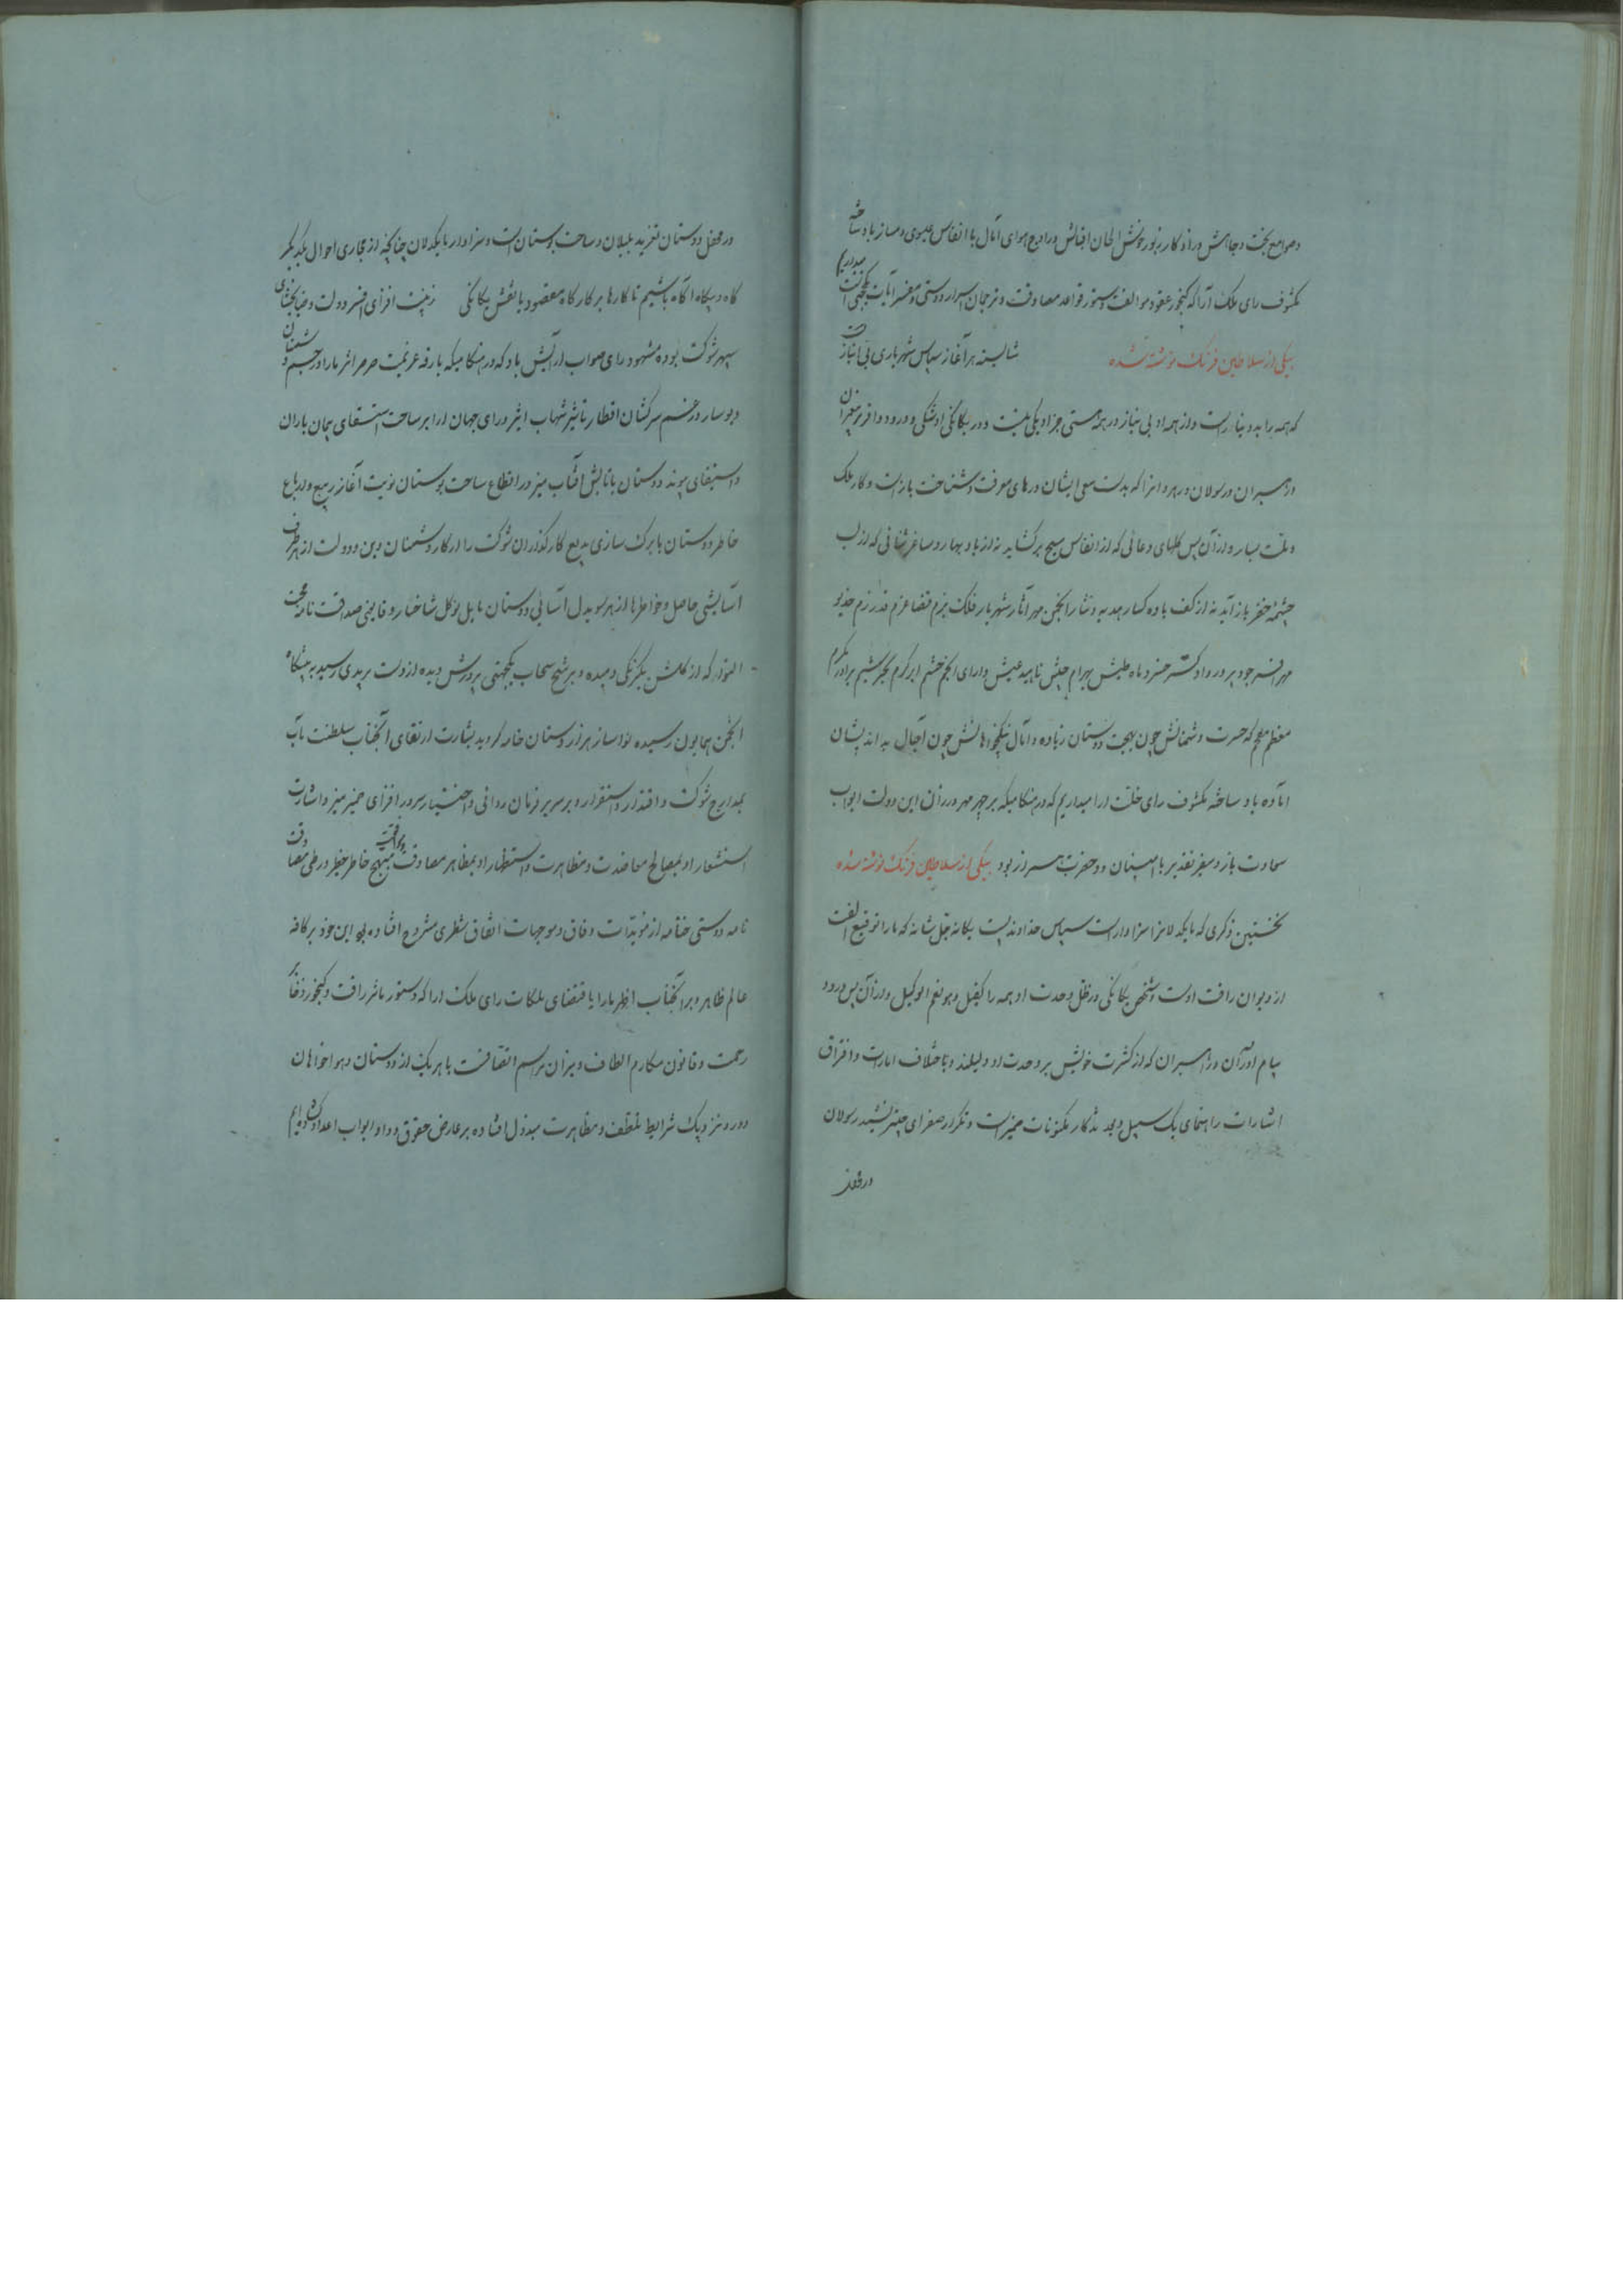 و صوامع بخت و جاهش در اذکار زبور خوش الحان اقبالش در اوج هوای آمال با انفاس عیسوی دمساز باد ساخته
مکشوف رای ملک آرا که گنجور عقود موالفت و دستور قواعد مصادقت و ترجمان اسرار دوستی و مفسر آیات یکجهتی است میداریم
بیکی از سلاطین فرنگ نوشته شده شایسته هر آغاز سپاس شهریاری بی انباز است
که همه را بدو نیاز است و از همه او بی نیاز در همه هستی جز او یکی نیست و در یگانگی او شکی و درود وافر بر پیغمبران
و رهبران و رسولان و رهروان را که بدست سعی ایشان درهای معرفت و شناخت باز است و کار ملک
و ملت بساز و از آن پس گلهای دعائی که از انفاس مسیح برگشاید نه از باد بهار و ساغر ثنائی که از لب
چشمه خضر باز آید نه از کف باده گسار هدیه و نثار انجمن مهر آثار شهریار فلک بزم قضا عزم قدر رزم خدیو
مهر افسر جود پرور دادگستر خسرو ماه طیش بهرام جیش ناهید عیش دارای انجم حشم ابر کرم برادر مکرم
معظم مفخم که حسرت دشمنانش چون بهجت دوستان زیاده و آمال نیکخواهانش چون آجال بداندیشان
آماده باد ساخته مکشوف رای خلت آرا میداریم که در هنگامیکه بر چهر مهرورزان این دولت ابواب
سعادت باز و سفیر تقدیر با امینان دو حضرت همراز بود بیکی از سلاطین فرنگ نوشته شده
نخستین ذکری که یکدلان را سزاوار است سپاس خداوندیست یگانه جل شانه که ما را توقیع الفت
از دیوان رافت اوست و شخص یگانگی در ظل وحدت او همه را کفیل و هو نعم الوکیل و از آن پس درود
پیام آوران و راهبران که از کثرت خویش بر وحدت او دلیلند و باختلاف امارات و افتراق
اشارات راهنمای یک سبیل و بعد تذکار مکنونات ضمیر است و تکرار صغرای رسولان
در محفل
در محفل دوستان تغرید بلبلان و ساحت بوستان است و سزاوار با یکدلان چنانچه از مجاری احوال یکدیگر
گاه و بیگاه آگاه باشیم تا کارها بر کارگاه مقصود با نقش یگانگی زینت افزای افسر دولت و ضیا بخشای
سپهر شوکت بوده مشهود رای صواب آرایش باد که در هنگامیکه بارقه عزیمت صرصر اثر ما را در جسم دشمنان
دیوسار و خصم سرکشان اقطار تاثیر شهاب اثیر و رای جهان آرا بر ساحت استسقای پیمان باران
و استیفای پیوند دوستان با تابش آفتاب منیر در اقطاع ساحت بوستان نوبت آغاز ربیع و در باغ
خاطر دوستان با برگ سازی بدیع کارگذاران شوکت را از کار دشمنان دین و دولت از هر طرف
آسایشی حاصل و خواطرها از هر سو بدل آسائی دوستان مایل نوگل شاخسار وفا یعنی صداقت نامه محبت
که از گلشن یکرنگی دمیده و برشح سحاب یکجهتی پرورش دیده از دست بریدی رسید به پیشگاه
انجمن همایون رسیده نواساز هزار دستان خامه گردید بشارت ارتقای آنجناب سلطنت مآب
بمدارج شوکت و اقتدار و استقرار او بر سریر فرمان روائی و اختیار سرور افزای ضمیر منیر و اشارت
استشعار او بمصالح معاضدت و مظاهرت و استظهار او بمظاهر مصادقت و موافقت مبهج خاطر خطیر در طی مصادقت
نامه دوستی ختامه از مؤیدات وفاق و موجبات اتفاق شطری مشروح افتاده بود این خود بر کافه
عالم ظاهر و بر آنجناب اظهر ما را باقتضای ملکات رای ملک آرا که دستور مآثر رافت و گنجور ذخائر
رحمت و قانون مکارم الطاف و میزان مراسم با هر یک از دوستان و هواخواهان
دور و نزدیک شرایط تلطف و مظاهرت مبذول افتاده بر عارض حقوق وداد ابواب امداد گشوده ایم